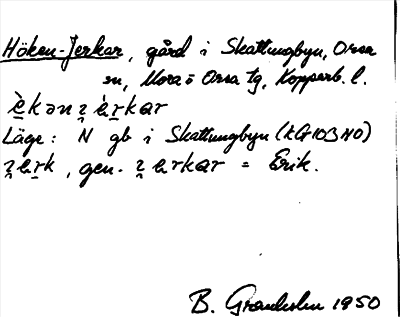 Höken-Jerkar, gård i Skattungbyn, Orsa
sn, Mora o Orsa tg, Kopparb. l.
è̱kənʒ̱èṟkar
Läge: N gb i Skattungbyn (kG103 NO)
ʒ̱eṟk, gen. ʒ̱erkar = Erik.
B. Granholm 1950